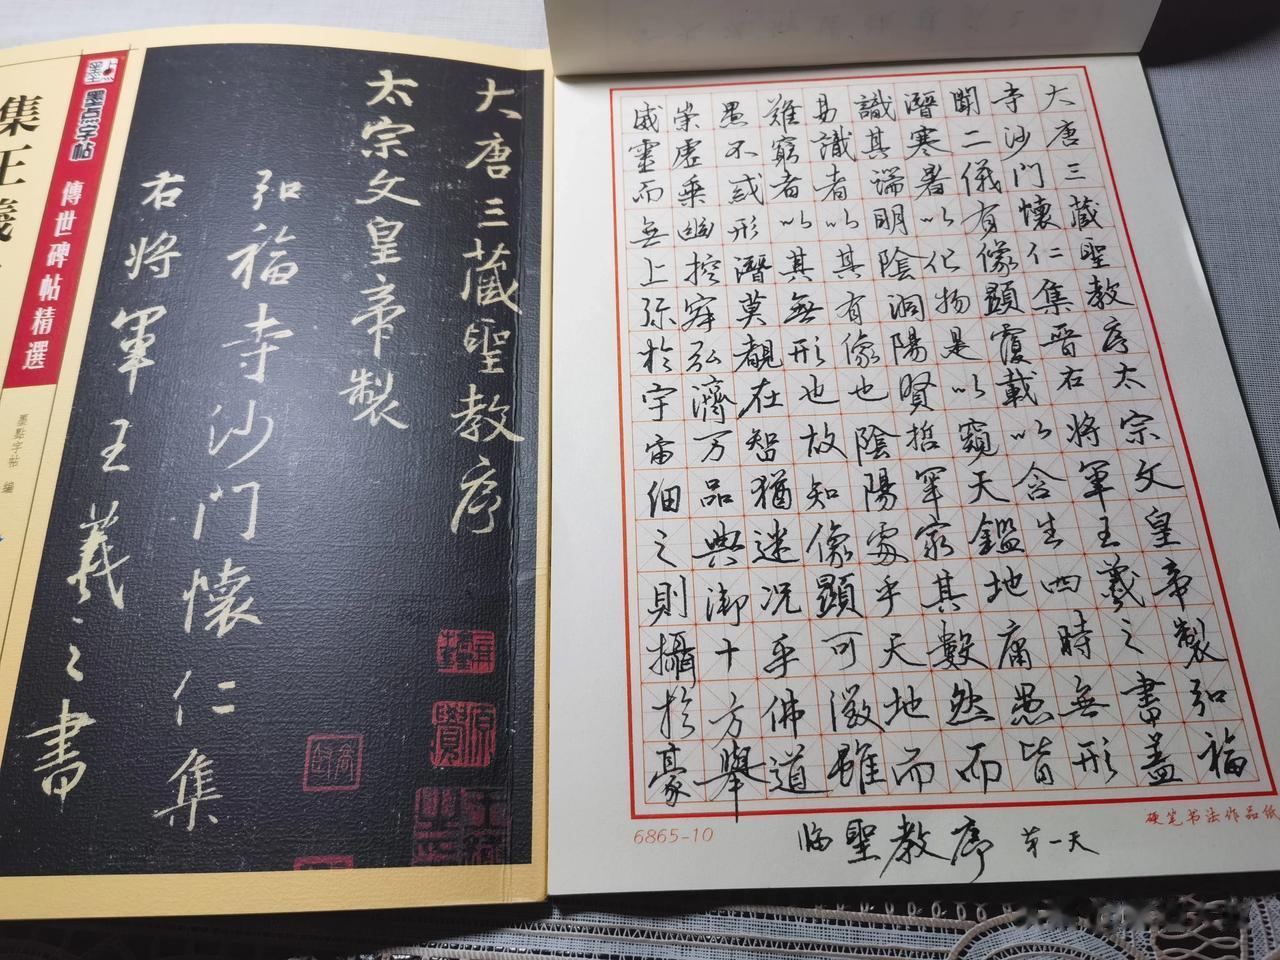 集王羲
墨点字帖
傳世碑帖精選
墨點字帖 編
大唐三藏聖教序
太宗文皇帝製
弘福寺沙门懷仁集
右將軍王羲之書
大唐三藏聖教序太宗文皇帝製弘福
寺沙门懷仁集晉右將軍王羲之書蓋
聞二儀有像顯覆載以含生四時無形
潛寒暑以化物是以窺天鑑地庸愚皆
識其端明陰洞陽賢哲罕窮其數然而
易識者以其有像也陰陽處乎天地而
難窮者以其無形也故知像顯可徵雖
愚不惑形潛莫覩在智猶迷况乎佛道
崇虛乘幽控寂弘濟万品典御十方舉
威靈而無上弥於宇宙細之則攝於豪
6865-10
硬笔书法作品纸
临聖教序 第一天